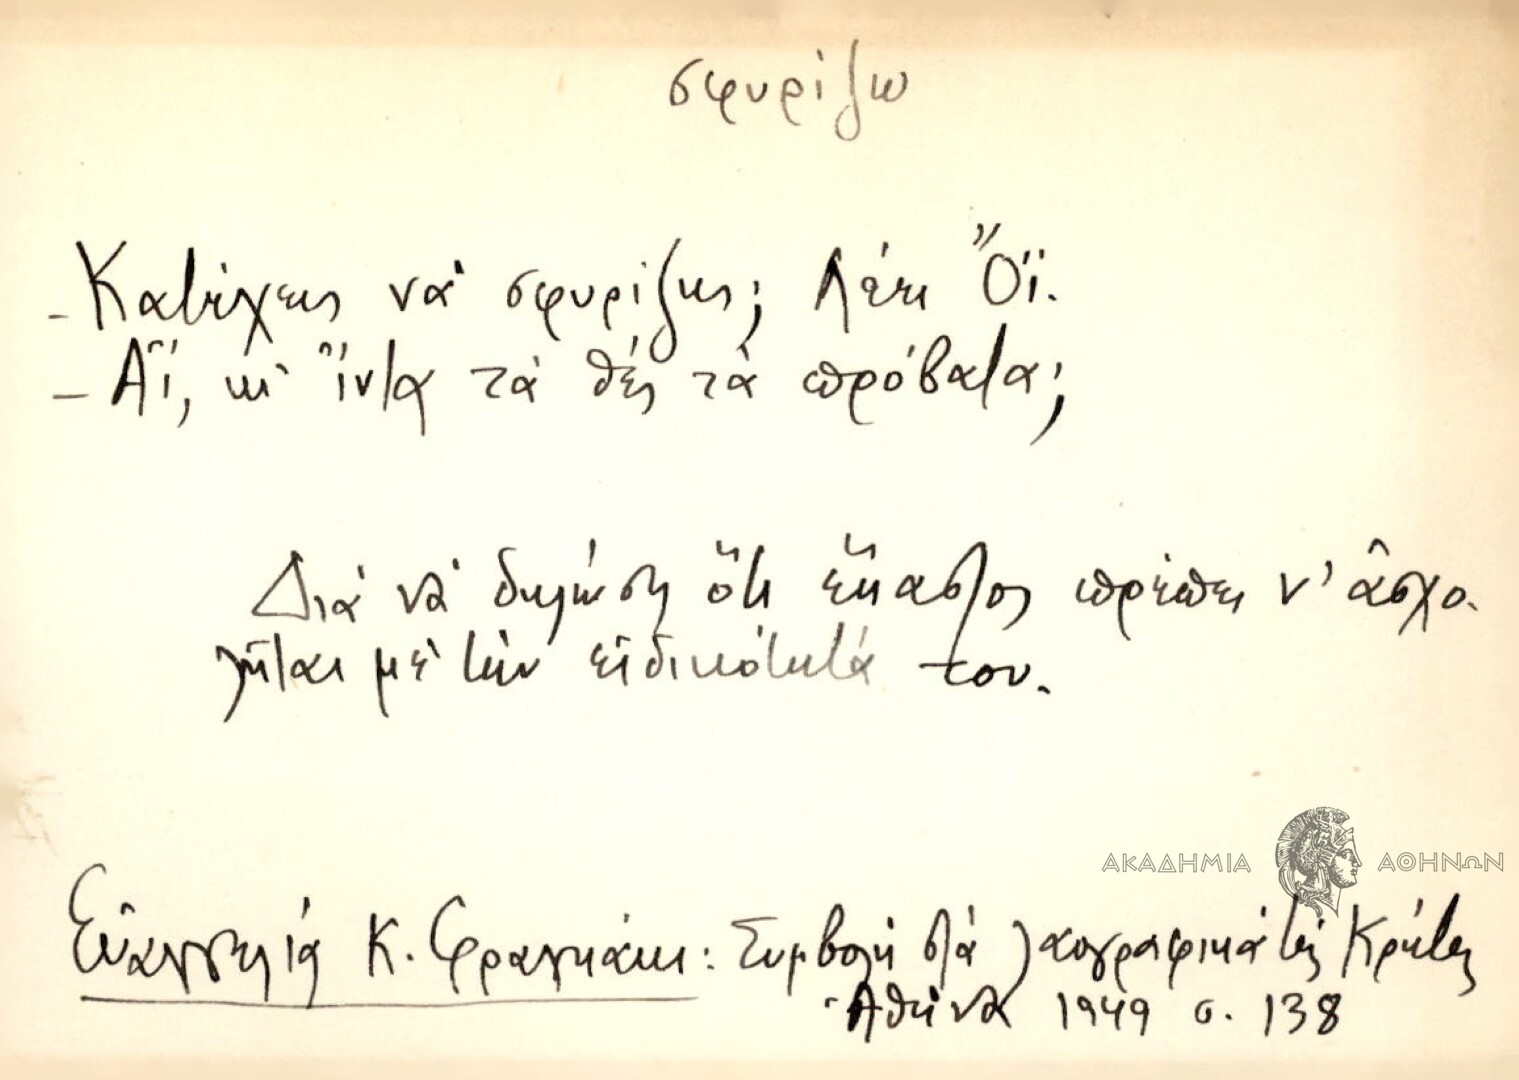 σφυρίζω
- Κατέχεις νὰ σφυρίζῃς; Λέει Ὄϊ.
- Ἄϊ, κι ἴντα τὰ θές τὰ πρόβατα;
Διὰ νὰ δηλώσῃ ὅτι ἕκαστος πρέπει ν' ἀσχο-
λῆται μὲ τὴν εἰδικότητά του.
Εὐαγγελία Κ. Φραγκάκι: Συμβολὴ στὰ λαογραφικὰ τῆς Κρήτης
Ἀθήνα 1949 σ. 138
ΑΚΑΔΗΜΙΑ ΑΘΗΝΩΝ